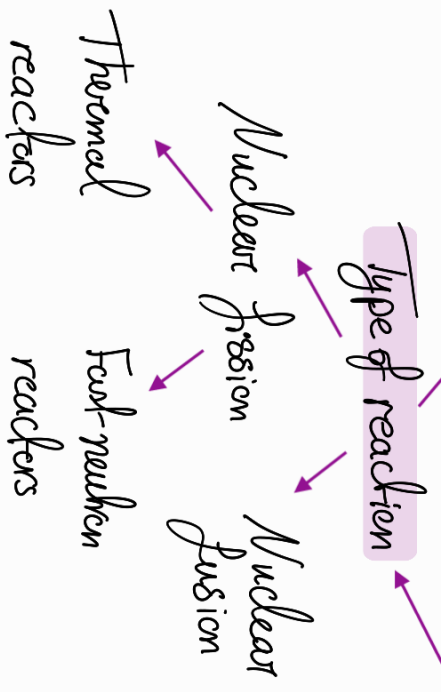 Type of reaction
Nuclear fission
Nuclear
fusion
Thermal
reactors
Fast-neutron
reactors